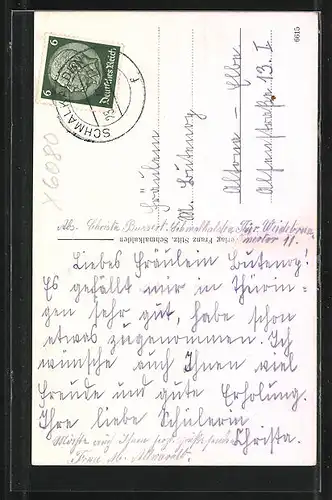 6 Deutsches Reich 6
SCHMALKALDEN
f
6615
Fräulein
M. Butenog
Altona - Elbe
Alsenstraße 13. I
X6080
Abs. Christa Schmalkalden Thür.
11.
Verlag Franz Stitz, Schmalkalden
Liebes Fräulein Butenog!
Es gefällt mir in Thürin-
gen sehr gut, habe schon
etwas zugenommen. Ich
wünsche auch Ihnen viel
Freude und gute Erholung.
Ihre liebe Schülerin
Christa.
Möchte auch Ihnen
Frau M.